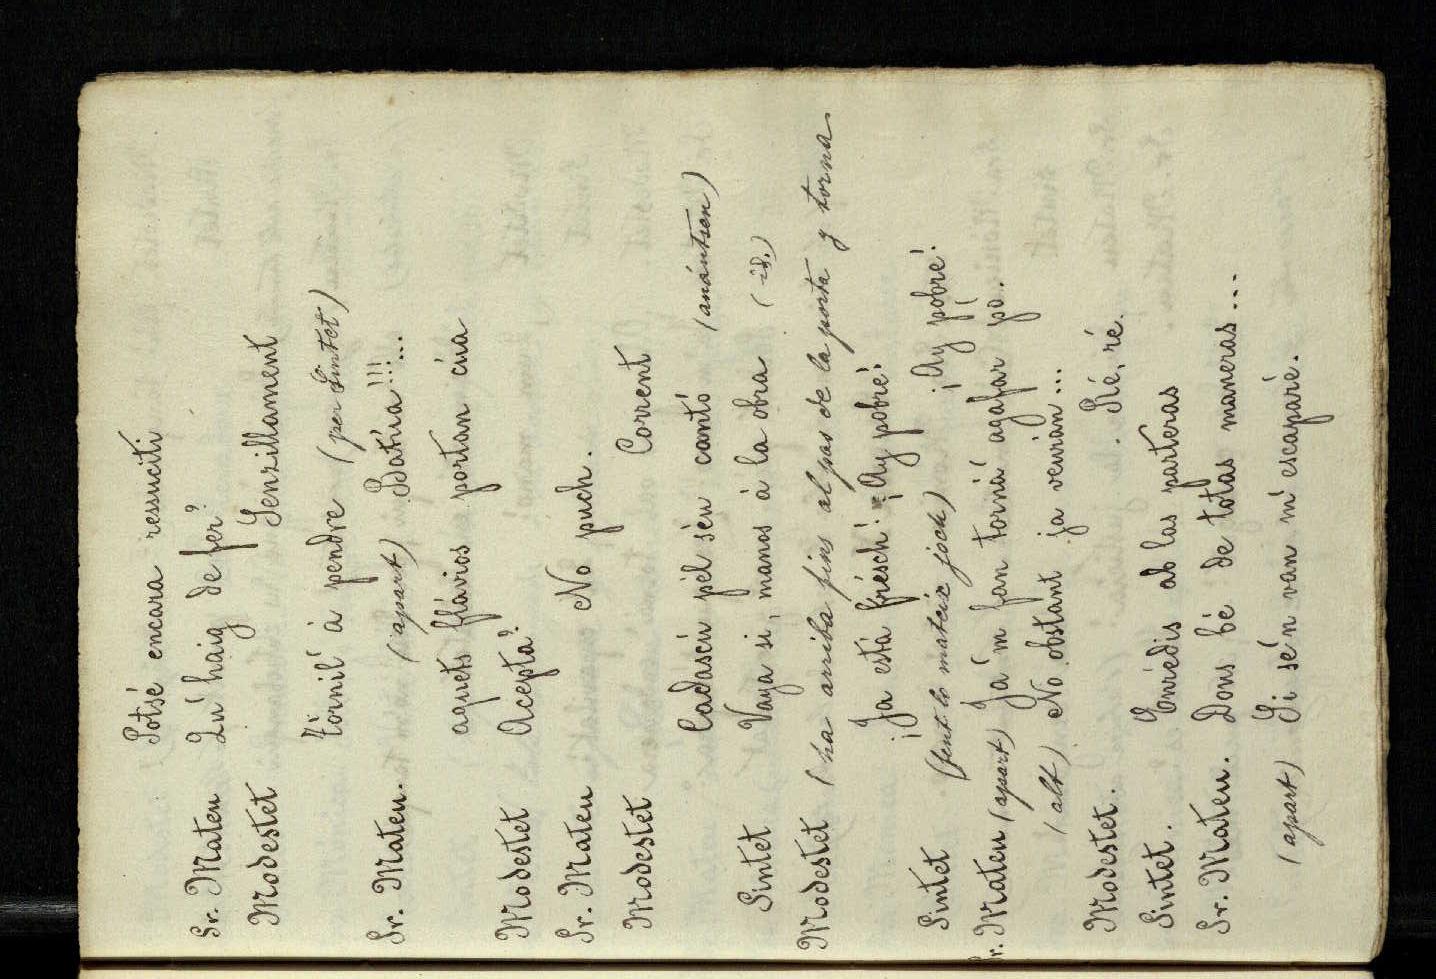 Potsé encara ressuciti
Sr. Mateu Qu' haig de fer?
Modestet Senzillament
Tórnil' á pendre (per Sintet)
Sr. Mateu. (apart) Batúa!!!...
aquets flávios portan cúa
Modestet Acepta?
Sr. Mateu No puch.
Modestet Corrent
Cadascú pel séu cantó (anántsen)
Sintet Vaya si, manos á la obra (id.)
Modestet (ha arriba fins al pas de la porta y torna
¡Ja está frésch! ¡Ay pobre!
Sintet (fent lo mateix joch) ¡Ay pobre!
Sr. Mateu (apart) Ja'm fan torná agafar pó.
(alt) No obstant ja veurán...
Modestet. Ré, ré.
Sintet. Enrédis ab las parteras
Sr. Mateu. Dons bé de totas maneras...
(apart) Si se'n van m' escaparé.